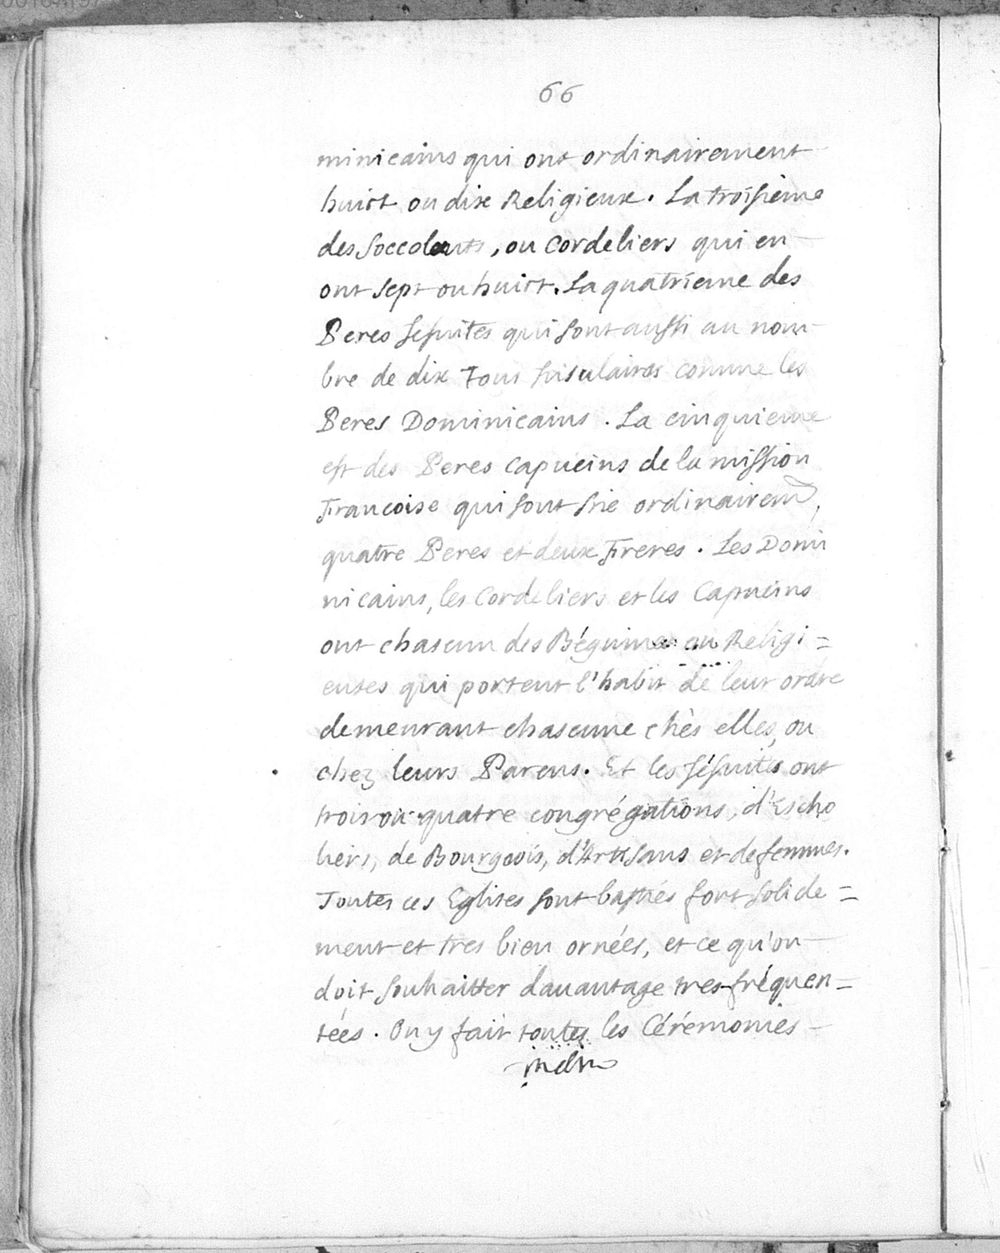 66
minicains qui ont ordinairement
huict ou dix Religieux. La troisième
des Soccolants, ou Cordeliers qui en
ont sept ou huict. La quatrieme des
Peres Jesuites qui sont aussi au nom-
bre de dix Tous Insulaires comme les
Peres Dominicains. La cinquieme
est des Peres Capucins de la mission
Francoise qui sont six ordinairemt,
quatre Peres et deux Freres. Les Domi
nicains, les Cordeliers et les Capucins
ont chascun des Béguines ou Religi=
euses qui portent l'habit de leur ordre
demeurant chascune chès elles, ou
chez leurs Parens. Et les Jésuites ont
trois ou quatre congrégations, d'Escho
liers, de Bourgeois, d'Artisans et de femmes.
Toutes ces Eglises sont basties fort solide=
ment et tres bien ornées, et ce qu'on
doit souhaitter dauantage tres fréquen=
tées. On y fait toutes les Cérémonies